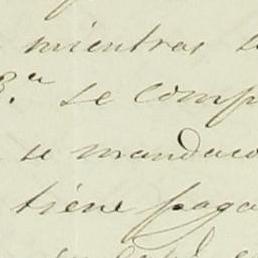 mientras
3.ª se comp
se mandaco
tiene paga